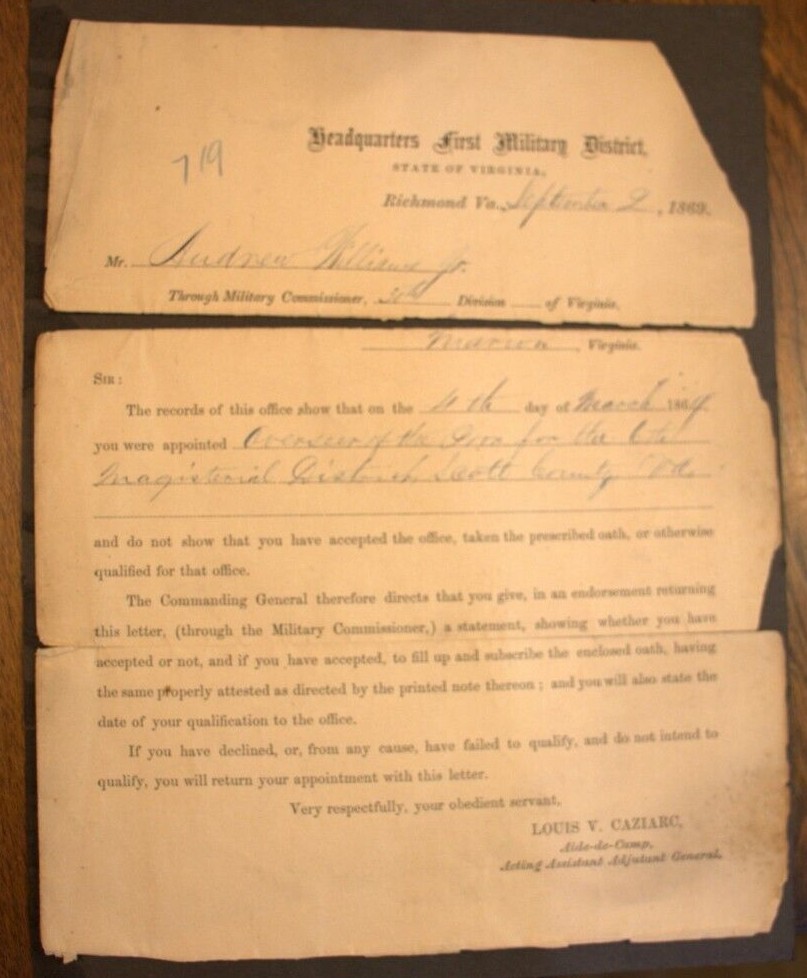 Headquarters First Military District,
719
STATE OF VIRGINIA,
Richmond Va., September 2, 1869.
Mr. Andrew Williams Jr.
Through Military Commissioner, Division of Virginia.
Marion, Virginia.
SIR:
The records of this office show that on the 4th day of March 1869
you were appointed Overseer of the Poor for the
Magisterial District Scott County Va.
and do not show that you have accepted the office, taken the prescribed oath, or otherwise
qualified for that office.
The Commanding General therefore directs that you give, in an endorsement returning
this letter, (through the Military Commissioner,) a statement, showing whether you have
accepted or not, and if you have accepted, to fill up and subscribe the enclosed oath, having
the same properly attested as directed by the printed note thereon; and you will also state the
date of your qualification to the office.
If you have declined, or, from any cause, have failed to qualify, and do not intend to
qualify, you will return your appointment with this letter.
Very respectfully, your obedient servant,
LOUIS V. CAZIARC,
Aide-de-Camp,
Acting Assistant Adjutant General.